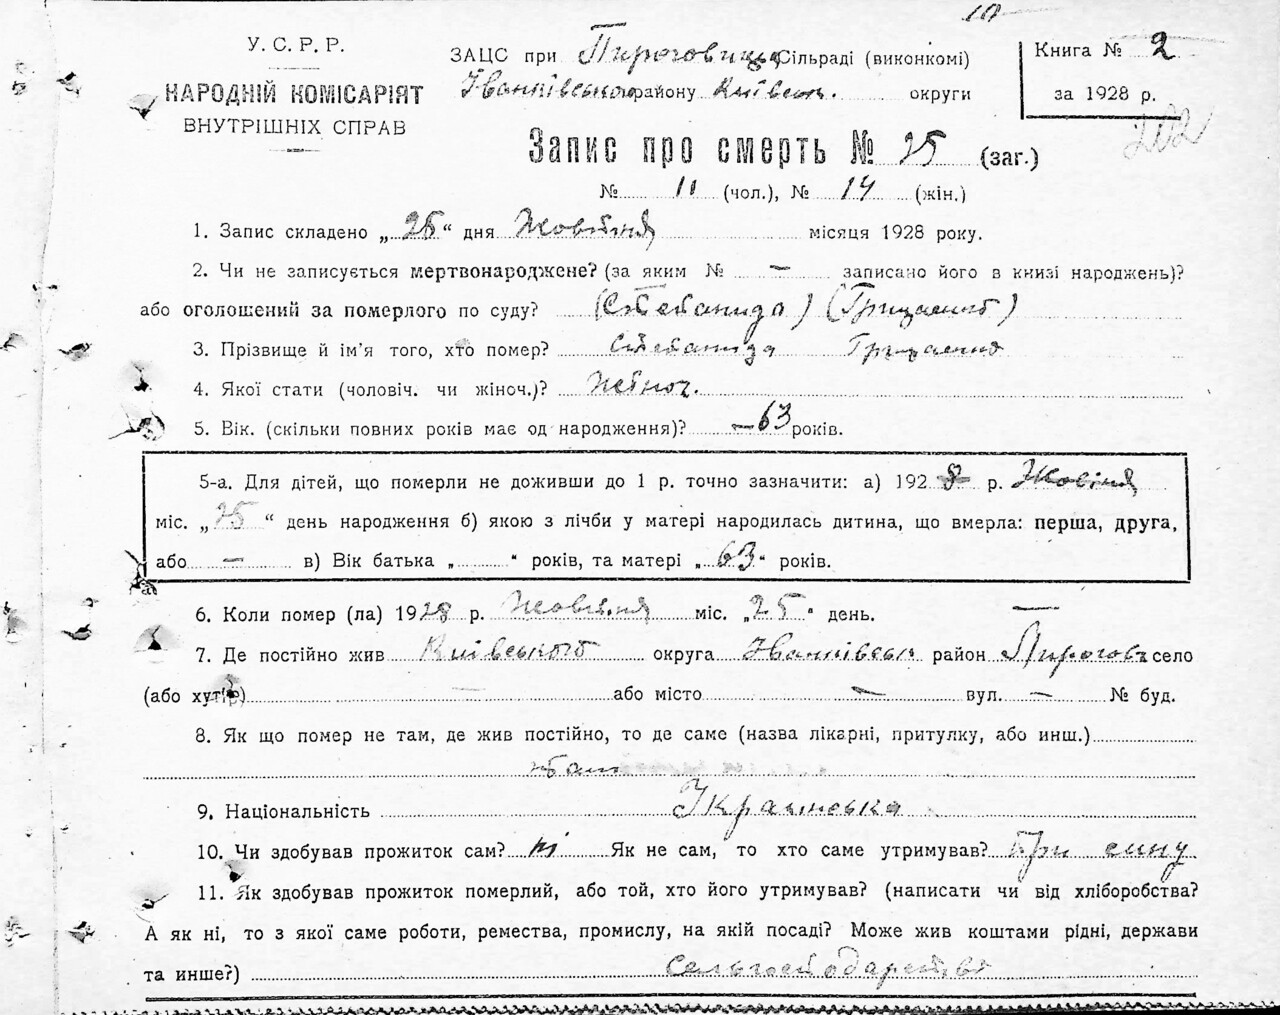 10
У. С. Р. Р.
НАРОДНІЙ КОМІСАРІЯТ
ВНУТРІШНІХ СПРАВ
ЗАЦС при Пироговицькій Сільраді (виконкомі)
Іванківського району Київськ. округи
Книга № 2
за 1928 р.
202
Запис про смерть № 25 (заг.)
№ 11 (чол.), № 14 (жін.)
1. Запис складено „ 25 “ дня Жовтня місяця 1928 року.
2. Чи не записується мертвонароджене? (за яким № — записано його в книзі народжень)?
або оголошений за померлого по суду? (Степанида) (Грищенко)
3. Прізвище й ім’я того, хто помер? Степанида Грищенко
4. Якої стати (чоловіч. чи жіноч.)? Жіноч.
5. Вік. (скільки повних років має од народження)? — 63 років.
5-а. Для дітей, що померли не доживши до 1 р. точно зазначити: а) 1928 р. Жовтня
міс. „ 25 “ день народження б) якою з лічби у матері народилась дитина, що вмерла: перша, друга,
або — в) Вік батька „ “ років, та матері „ 63 “ років.
6. Коли помер (ла) 1928 р. Жовтня міс. „ 25 “ день. —
7. Де постійно жив Київського округа Іванківськ район Пирогов село
(або хутір) — або місто — вул. — № буд.
8. Як що помер не там, де жив постійно, то де саме (назва лікарні, притулку, або инш.)
9. Національність Українська
10. Чи здобував прожиток сам? ні Як не сам, то хто саме утримував? При сину
11. Як здобував прожиток померлий, або той, хто його утримував? (написати чи від хліборобства?
А як ні, то з якої саме роботи, ремества, промислу, на якій посаді? Може жив коштами рідні, держави
та инше?) Сельгосподарство